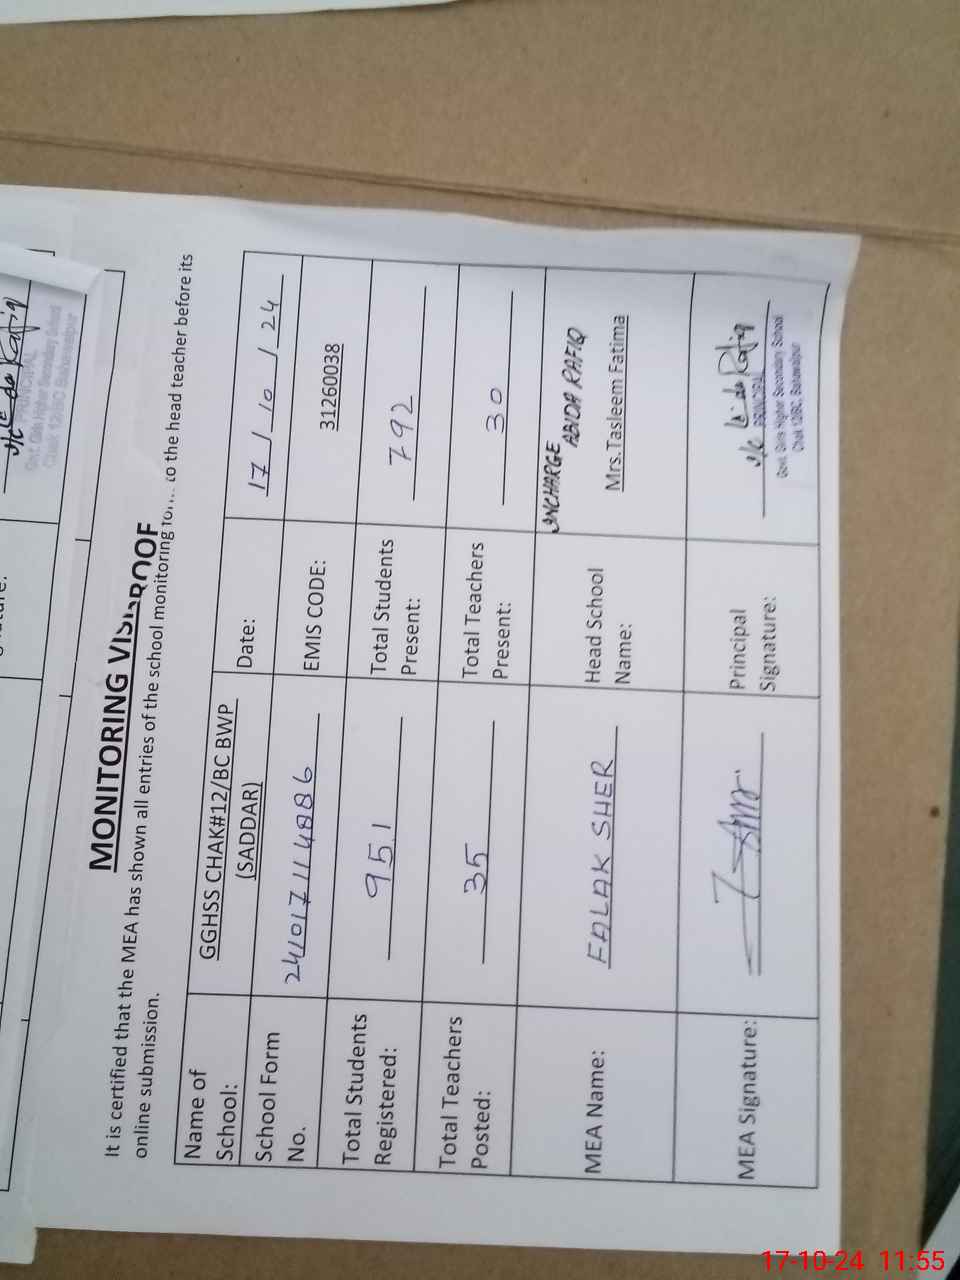 MONITORING VISIT PROOF
It is certified that the MEA has shown all entries of the school monitoring to the head teacher before its
online submission.
Name of School: GGHSS CHAK#12/BC BWP (SADDAR) Date: 17/10/24
School Form No. 241017114886 EMIS CODE: 31260038
Total Students Registered: 951 Total Students Present: 792
Total Teachers Posted: 35 Total Teachers Present: 30
MEA Name: FALAK SHER Head School Name: INCHARGE ABIDA RAFIQ
Mrs.Tasleem Fatima
MEA Signature: Principal Signature:
PRINCIPAL
Govt. Girls Higher Secondary School
Chak 12/BC, Bahawalpur
PRINCIPAL
Govt. Girls Higher Secondary School
Chak 12/BC Bahawalpur
17-10-24 11:55